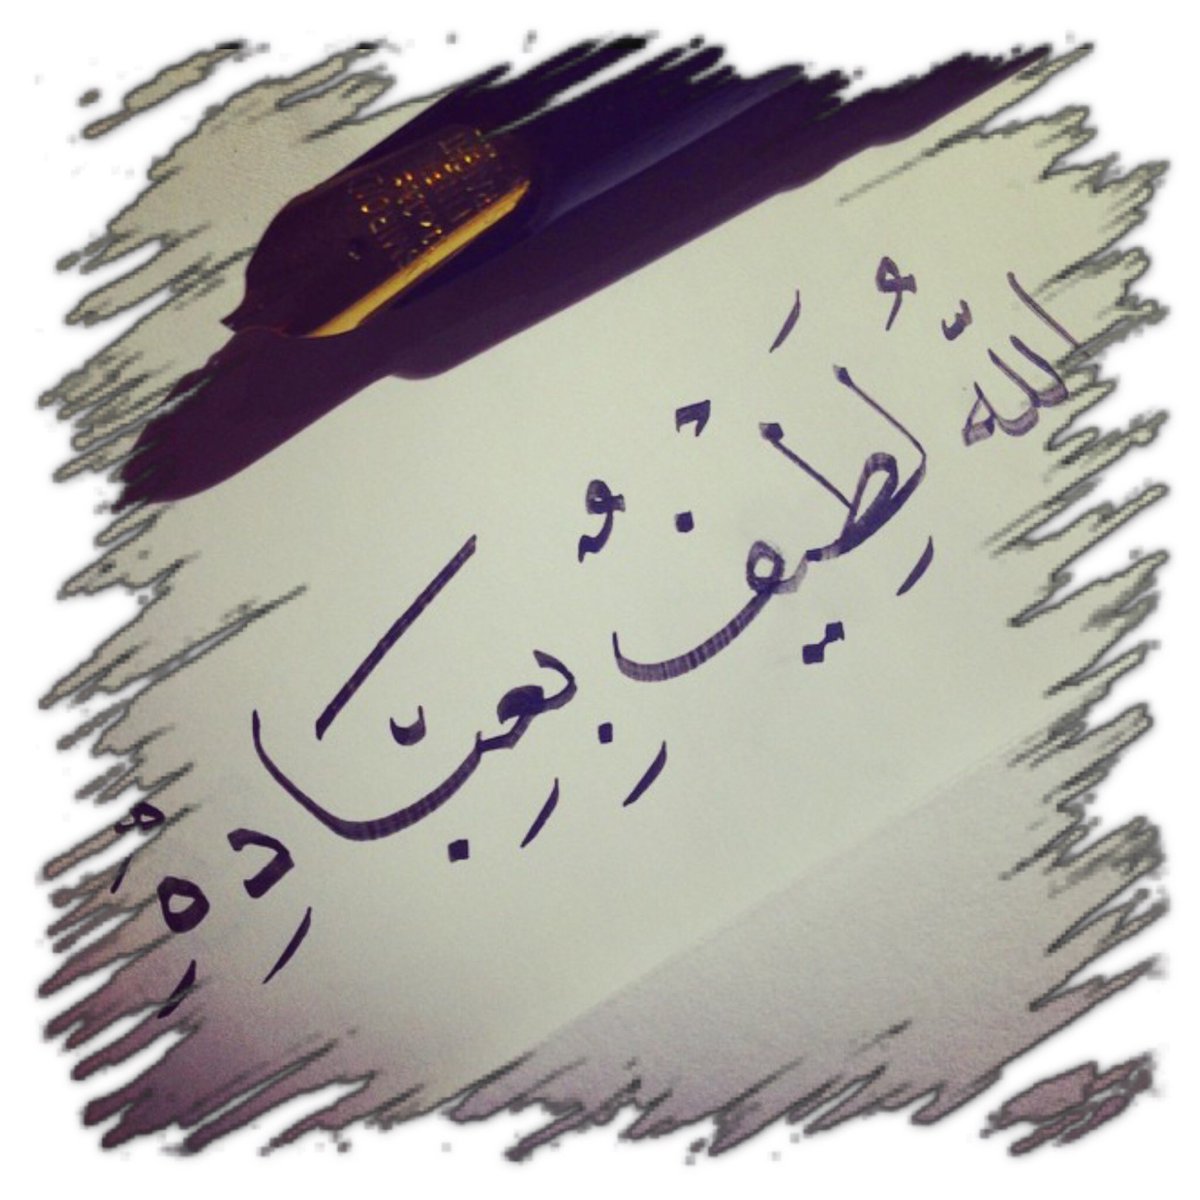 اللّهُ لَطِيْفٌ بِعِبَادِهِ